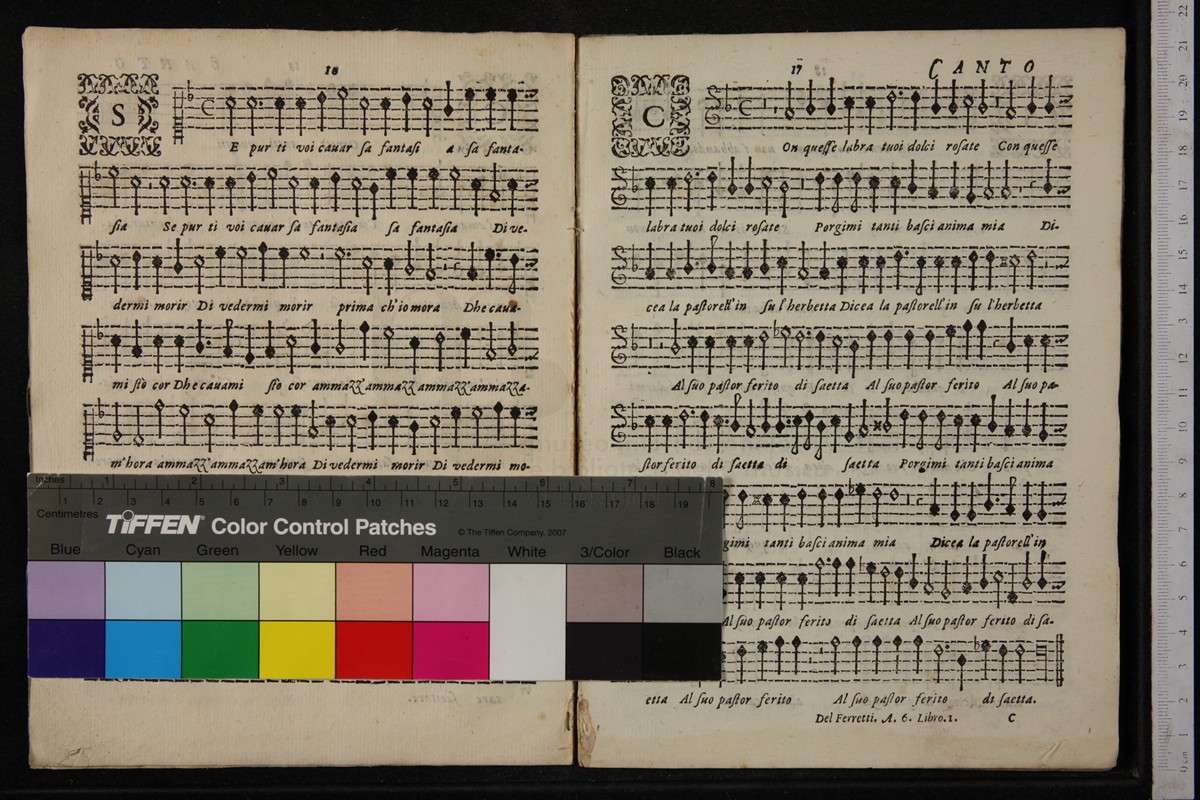 18
S
E pur ti voi cavar ſa fantaſi a ſa fanta-
ſia Se pur ti voi cavar ſa fantaſia ſa fantaſia Di ve-
dermi morir Di vedermi morir prima ch'io mora Dhe caua-
mi ſtò cor Dhe cauami ſto cor ammazz' ammazz' ammazz' ammazza-
m'hora ammazz' ammazzam'hora Di vedermi morir Di vedermi mo-
17 CANTO
C
On queſſe labra tuoi dolci roſate Con queſſe
labra tuoi dolci roſate Porgimi tanti baſci anima mia Di-
cea la paſtorell'in ſu l'herbetta Dicea la paſtorell'in ſu l'herbetta
Al ſuo paſtor ferito di ſaetta Al ſuo paſtor ferito Al ſuo pa-
ſtor ferito di ſaetta di ſaetta Porgimi tanti baſci anima
gimi tanti baſci anima mia Dicea la paſtorell'in
Al ſuo paſtor ferito di ſaetta Al ſuo paſtor ferito di ſa-
etta Al ſuo paſtor ferito Al ſuo paſtor ferito di ſaetta.
Del Ferretti. A. 6. Libro.1. C
Inches 1 2 3 4 5 6 7 8
Centimetres 1 2 3 4 5 6 7 8 9 10 11 12 13 14 15 16 17 18 19
TIFFEN® Color Control Patches © The Tiffen Company, 2007
Blue Cyan Green Yellow Red Magenta White 3/Color Black
0 cm 1 2 3 4 5 6 7 8 9 10 11 12 13 14 15 16 17 18 19 20 21 22